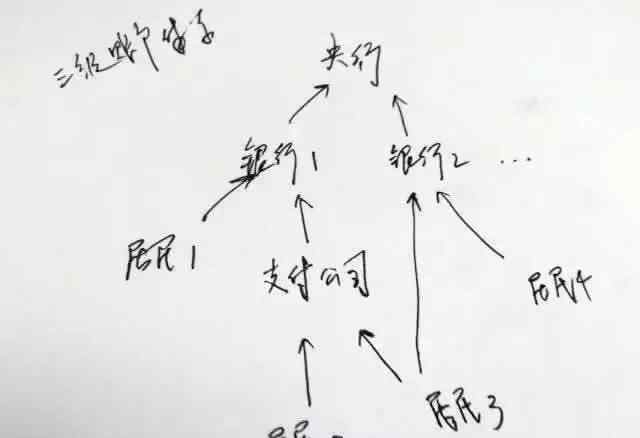 三级账户体系
央行
银行1
银行2 ...
居民1
支付公司
居民4
居民3